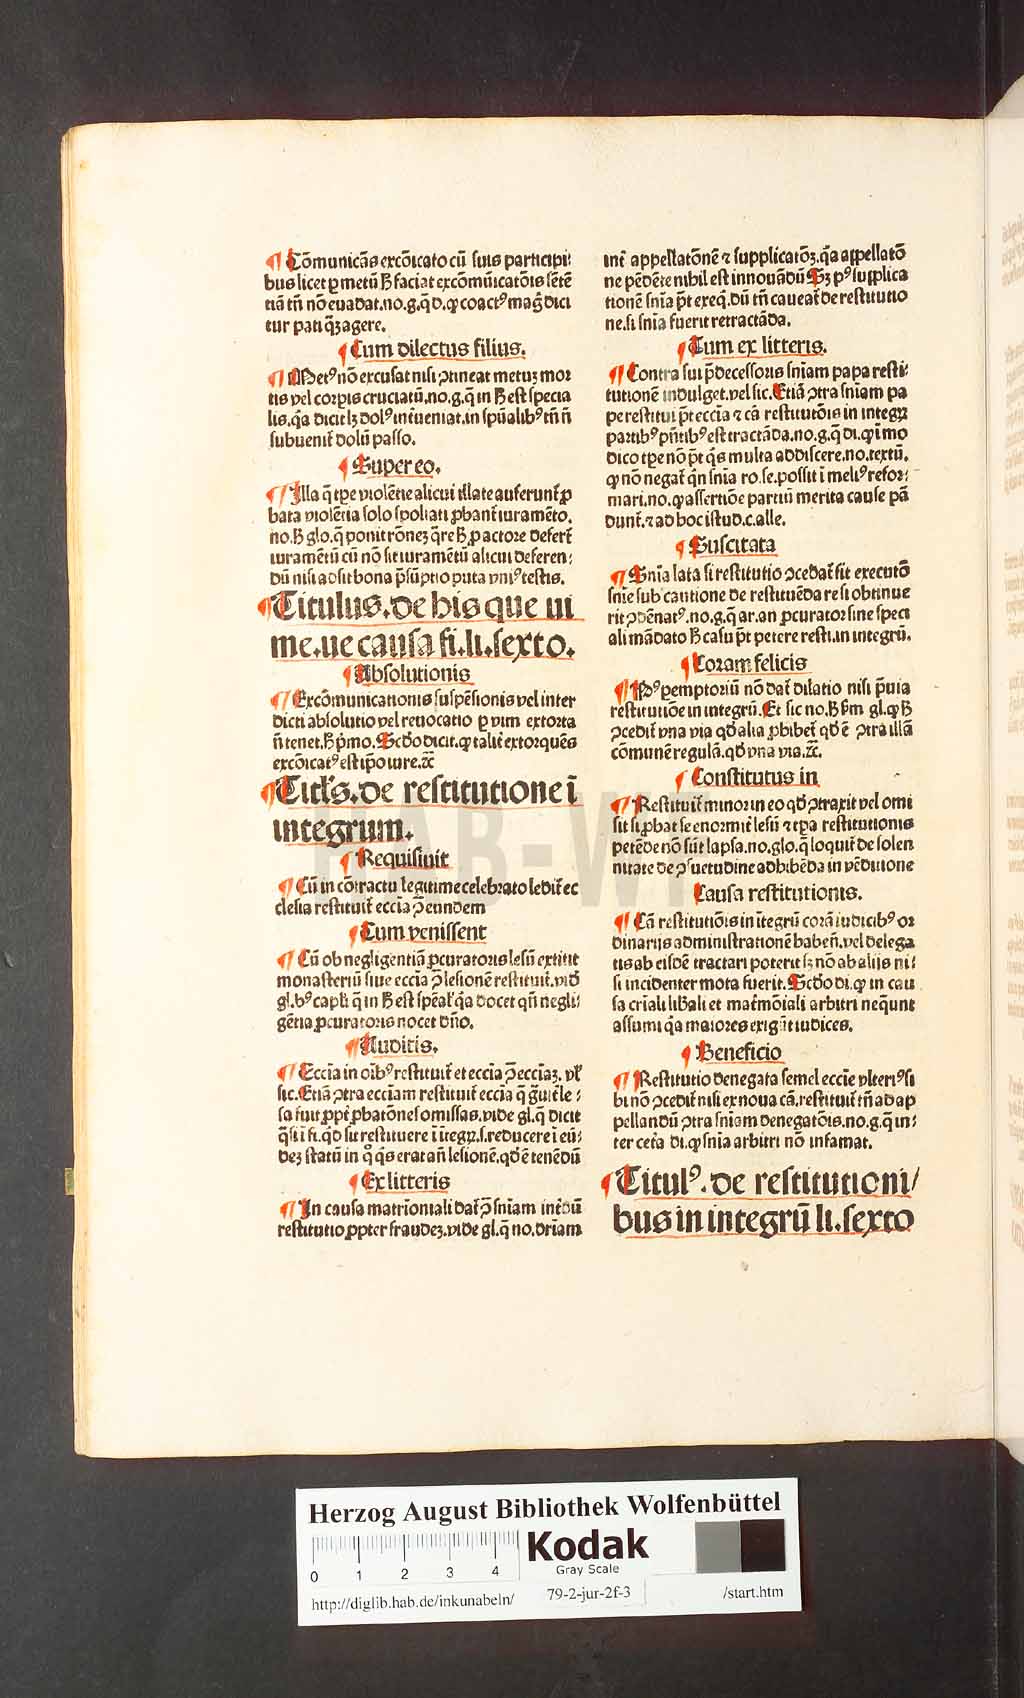 ¶ Cōmunicās excōicato cū suis participi⸗
bus licet ꝑ metū ħ faciat excōmūicatōis sētē
tiā tn̄ nō euadat.no.g.q̄ d.ꝙ coactꝰ magꝭ dici
tur pati qȝ agere.
¶ Cum dilectus filius.
¶ Metꝰ nō excusat nisi ꝯtineat metuȝ mor
tis vel corpis cruciatū.no.g.q̄ in ħ est specia
lis.q̄a dicit lȝ dolꝰ inƚueniat.in spūalibꝰ tn̄ n̄
subuenit̄ dolū passo.
¶ Super eo.
¶ Illa q̄ tꝑe violētie alicui illate auferunt̄ ꝓ
bata violētia solo spoliati ꝓbant̄ iuramēto.
no.ħ glo.q̄ ponit rōneȝ q̄re ħ ꝑ actore defert̄
iuramētū cū nō sit iuramētū alicui deferen⸗
dū nisi adsit bona p̄sūptio puta vniꝰ testis.
¶ Titulus.de his que ui
me.ue causa fi.li.sexto.
¶ Absolutionis
¶ Excōmunicationis suspēsionis vel inter
dicti absolutio vel reuocatio ꝑ vim extorta
n̄ tenet.ħ p̄mo.Scd̄o dicit.ꝙ talit̄ extorquēs
excōicatꝰ est ip̄o iure.ꝛc̄
¶ Titl's.de restitutione ī
integrum.
¶ Requisiuit
¶ Cū in cōtractu legitime celebrato ledit̄ ec
clesia restituit̄ ecc̄ia ꝯ̄ eundem
¶ Cum venissent
¶ Cū ob negligentiā ꝓcuratoris lesū extitit
monasteriū siue ecc̄ia ꝯ̄ lesionē restituit̄.vid̄
gl.hꝰ capl̄i q̄ in ħ est spēal' q̄a docet qn̄ negli⸗
gētia ꝓcuratoris nocet dn̄o.
¶ Auditis.
¶ Ecc̄ia in oībꝰ restituit̄ et ecc̄ia ꝯ̄ ecc̄iaȝ. vl'
sic.Etiā ꝯtra ecc̄iam restituit̄ ecc̄ia q̄ g̃uit̄ le⸗
sa fuit ꝓpt̄ ꝓbatōnes omissas.vide gl.q̄ dicit
q̄ sī ī fi.qd̄ sit restituere ī ītegꝝ.s.reducere ī eū⸗
deȝ statū in qͦ q̄s erat an̄ lesionē.qd̄ ē tenēdū
¶ Ex litteris
¶ In causa matrīoniali dat̄ ꝯ̄ sn̄iam int̄dū
restitutio ꝓpter fraudeȝ.vide gl.q̄ no.dr̄iam
int̄ appellatōnē ⁊ supplicatōȝ.q̄a appellatō
ne pēdēte nihil est innouādū Sȝ pꝰ supplica
tionē sn̄ia p̄t exeq̄.dū tn̄ caueat̄ de restitutio
ne.si sn̄ia fuerit retractāda.
¶ Cum ex litteris.
¶ Contra sui p̄decessoris sn̄iam papa resti⸗
tutionē indulget.vel sic.Etiā ꝯtra sn̄iam pa
pe restitui p̄t ecc̄ia ⁊ cā restitutōis in integꝝ
partibꝰ pn̄tibꝰ est tractāda.no.g.q̄ di.ꝙ ī mo
dico tꝑe nō p̄t q̄s multa addiscere.no.textū.
ꝙ nō negat̄ qn̄ sn̄ia ro.se.possit ī meliꝰ refor⸗
mari.no.ꝙ assertiōe partiū merita cause pā
dunt̄.⁊ ad hoc istud.c.alle.
¶ Suscitata
¶ Sn̄ia lata si restitutio ꝯcedat̄ sit executō
sn̄ie sub cautione de restituēda re si obtinue
rit ꝯdēnatꝰ.no.g.q̄ ar.an ꝓcurator sine speci
ali mādato ħ casu p̄t petere resti.in integrū.
¶ Coram felicis
¶ Pꝰ ꝑemptoriū nō dat̄ dilatio nisi p̄uia
restitutiōe in integrū.Et sic no.ħ p̄m gl.ꝙ ħ
ꝯcedit̄ vna via qd̄ alia ꝓhibet̄ qd̄ ē ꝯtra illā
cōmunē regulā.qd̄ vna via.ꝛc̄.
¶ Constitutus in
¶ Restituit̄ minor in eo qd̄ ꝯtraxit vel omi
sit si ꝓbat se enormit̄ lesū ⁊ tꝑa restitutionis
petēde nō sūt lapsa.no.glo.q̄ loquit̄ de solen
nitate de ꝯsuetudine adhibēda in vēditione
Causa restitutionis.
¶ Cā restitutiōis in ītegrū corā iudicibꝰ or
dinarijs administrationē haben̄.vel delega
tis ab eisdē tractari poterit sȝ nō ab alijs ni⸗
si incidenter mota fuerit.Scd̄o di.ꝙ in cau
sa cr̄iali lib̄ali et matr̄mōiali arbitri neq̄unt
assumi q̄a maiores exigūt iudices.
¶ Beneficio
¶ Restitutio denegata semel ecc̄ie vlteriꝰ si
bi nō ꝯcedit̄ nisi ex noua cā.restituit̄ tn̄ ad ap
pellandū ꝯtra sn̄iam denegatōis.no.g.q̄ in⸗
ter cet̄a di.ꝙ sn̄ia arbitri nō infamat.
¶ Titulꝰ.de restitutioni/
bus in integrū li.sexto
HAB-WF
Herzog August Bibliothek Wolfenbüttel
0 1 2 3 4
Kodak
Gray Scale
http://diglib.hab.de/inkunabeln/ 79-2-jur-2f-3 /start.htm